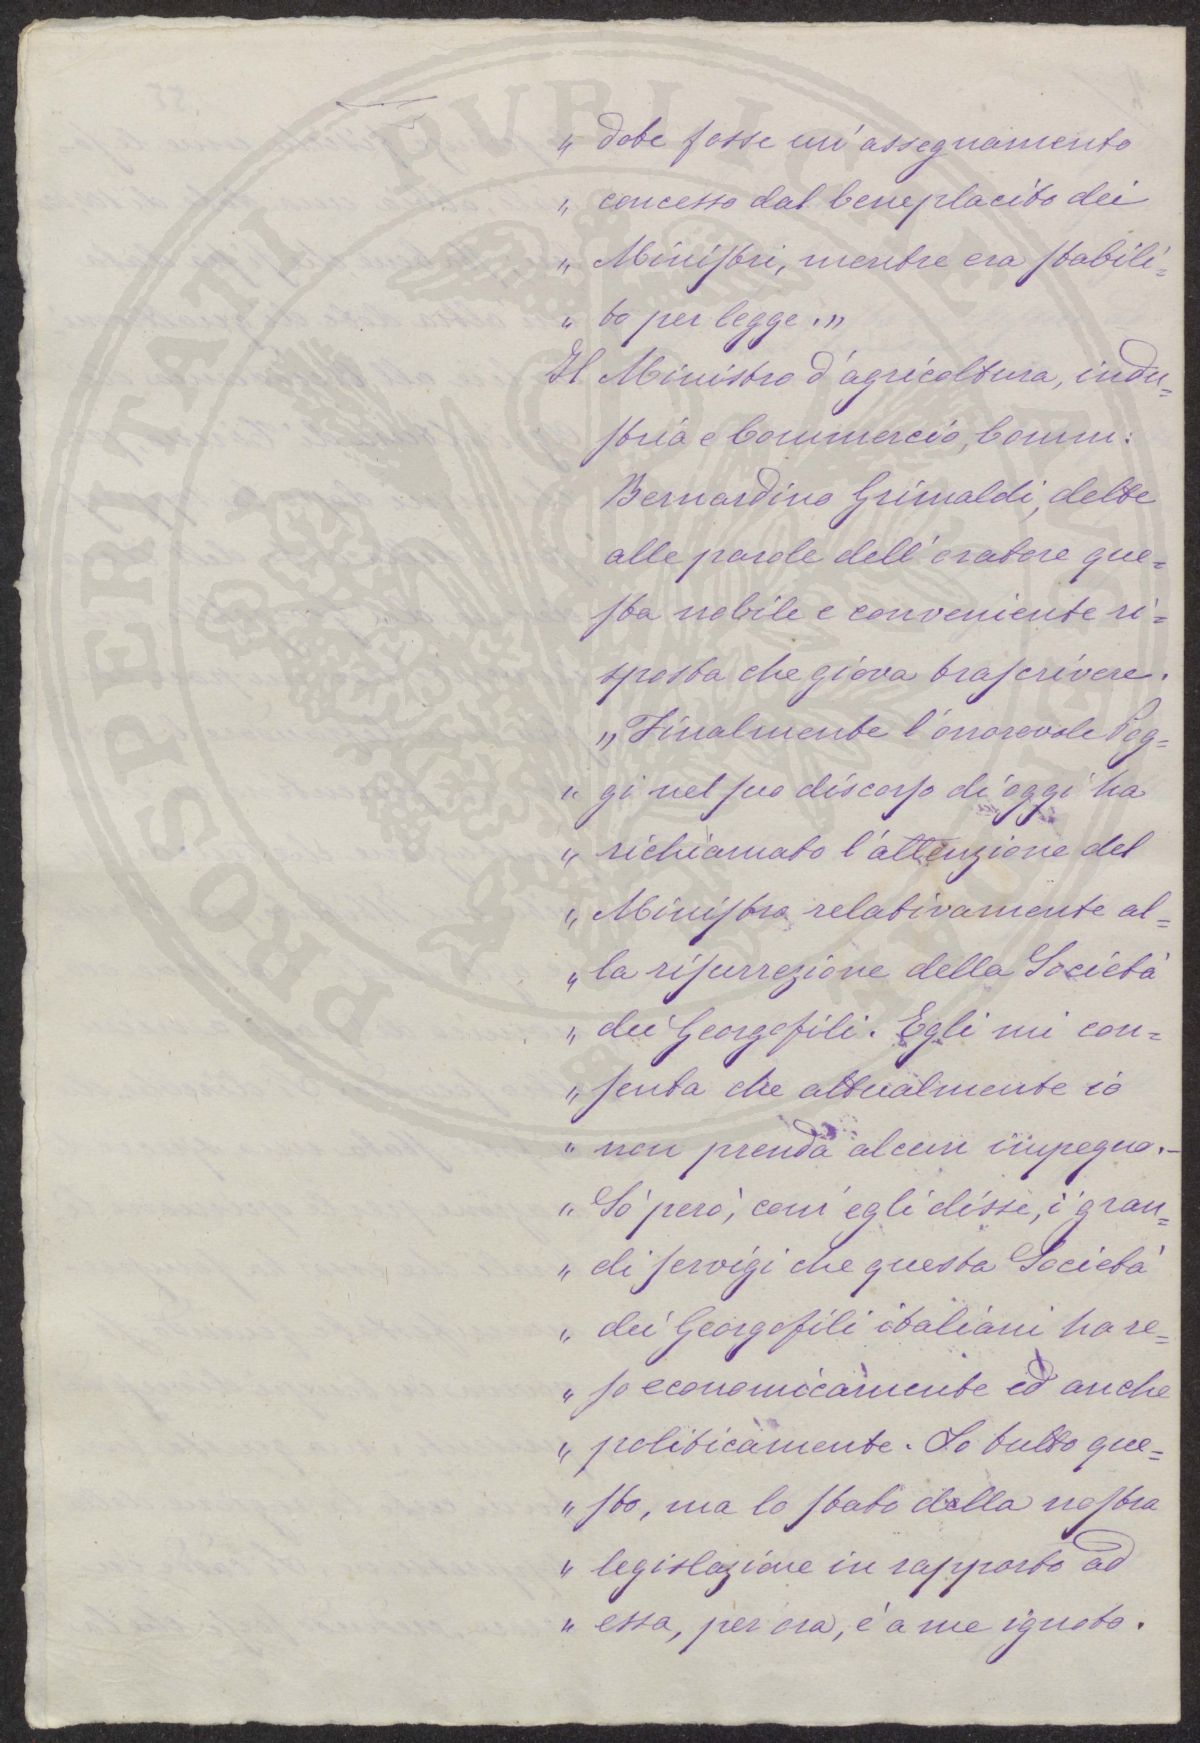 „ dote fosse un'assegnamento
„ concesso dal beneplacito dei
„ Ministri, mentre era stabili=
„ to per legge.„
Il Ministro d'agricoltura, indu=
stria e Commercio, Comm:
Bernardino Grimaldi, dette
alle parole dell'oratore que=
sta nobile e conveniente ri=
sposta che giova trascrivere.
„ Finalmente l'onorevole Pog=
„ gi nel suo discorso di oggi ha
„ richiamato l'attenzione del
„ Ministro relativamente al=
„ la risurrezione della Società
„ dei Georgofili. Egli mi con=
„ senta che attualmente io
„ non prenda alcun impegno.-
„ Sò però, com'egli disse, i gran=
„ di servigi che questa Società
„ dei Georgofili italiani ha re=
„ so economicamente ed anche
„ politicamente. So tutto que=
„ sto, ma lo stato della nostra
„ legislazione in rapporto ad
„ essa, per ora, è a me ignoto.
PROSPERITATI PVBLICAE AVGENDAE